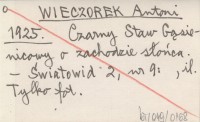 WIECZOREK Antoni
1925. Czarny Staw Gąsie-
nicowy o zachodzie słońca.
– Światowid 2, nr 9: , il.
Tylko fot.
b1/049/0168